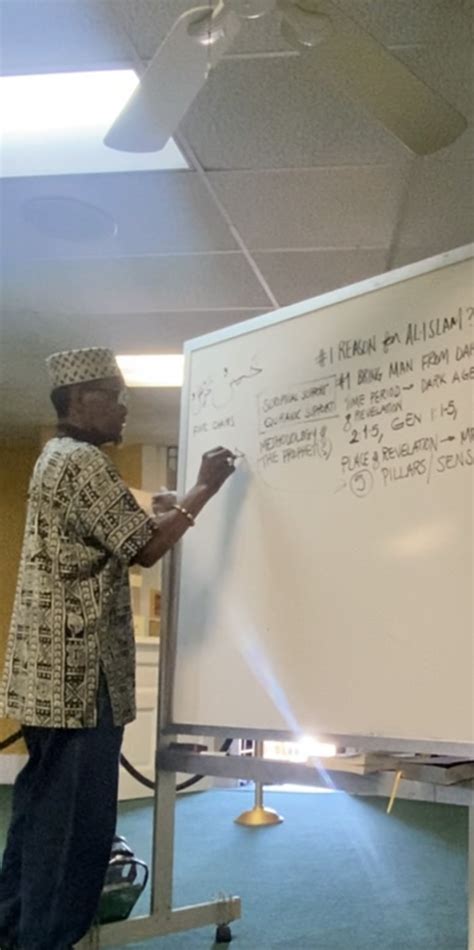 #1 REASON for AL-ISLAM?
#1 BRING MAN FROM DAR
TIME PERIOD → DARK AGE
& REVELATION
2:1-5, GEN 1:1-5,
PLACE & REVELATION →
5 PILLARS/SENS
SCRIPTURAL SUPPORT
QURANIC SUPPORT
METHODOLOGY of
THE PROPHET
FIVE CHAIRS